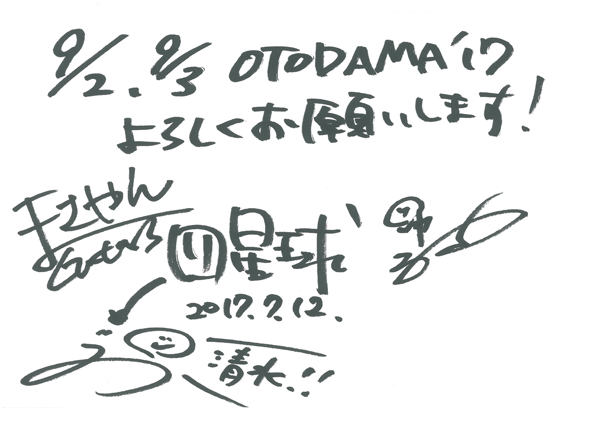 9/2、9/3 OTODAMA'17
よろしくお願いします!
まさやん
四星球
2017.7.12.
清水!!